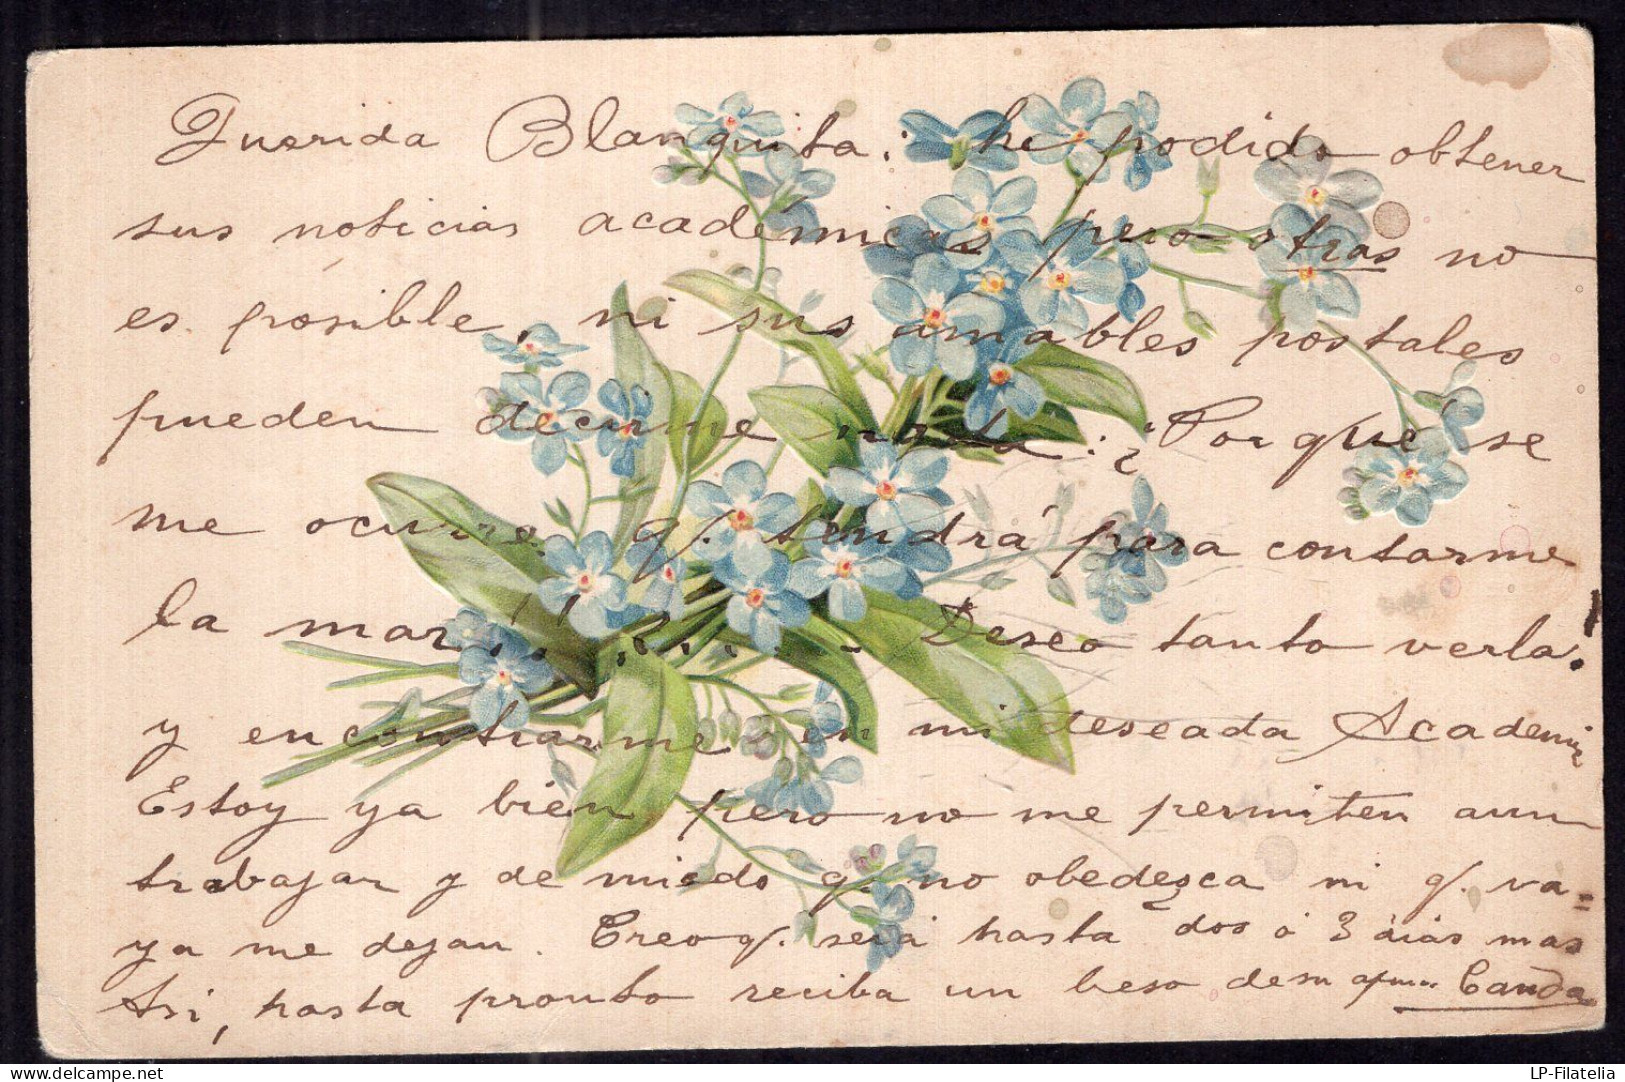 Querida Blanquita: he podido obtener
sus noticias académicas pero otras no
es posible, ni sus amables postales
pueden decirme nada: ¿Por qué se
me ocurre q. tendrá para contarme
la mar!! ........ Deseo tanto verla!
y encontrarme en mi deseada Academia
Estoy ya bien pero no me permiten aun
trabajar y de miedo q. no obedesca ni q. va=
ya me dejan. Creo q. será hasta dos ó 3 dias mas
Asi, hasta pronto reciba un beso de su
www.delcampe.net
LP-Filatelia